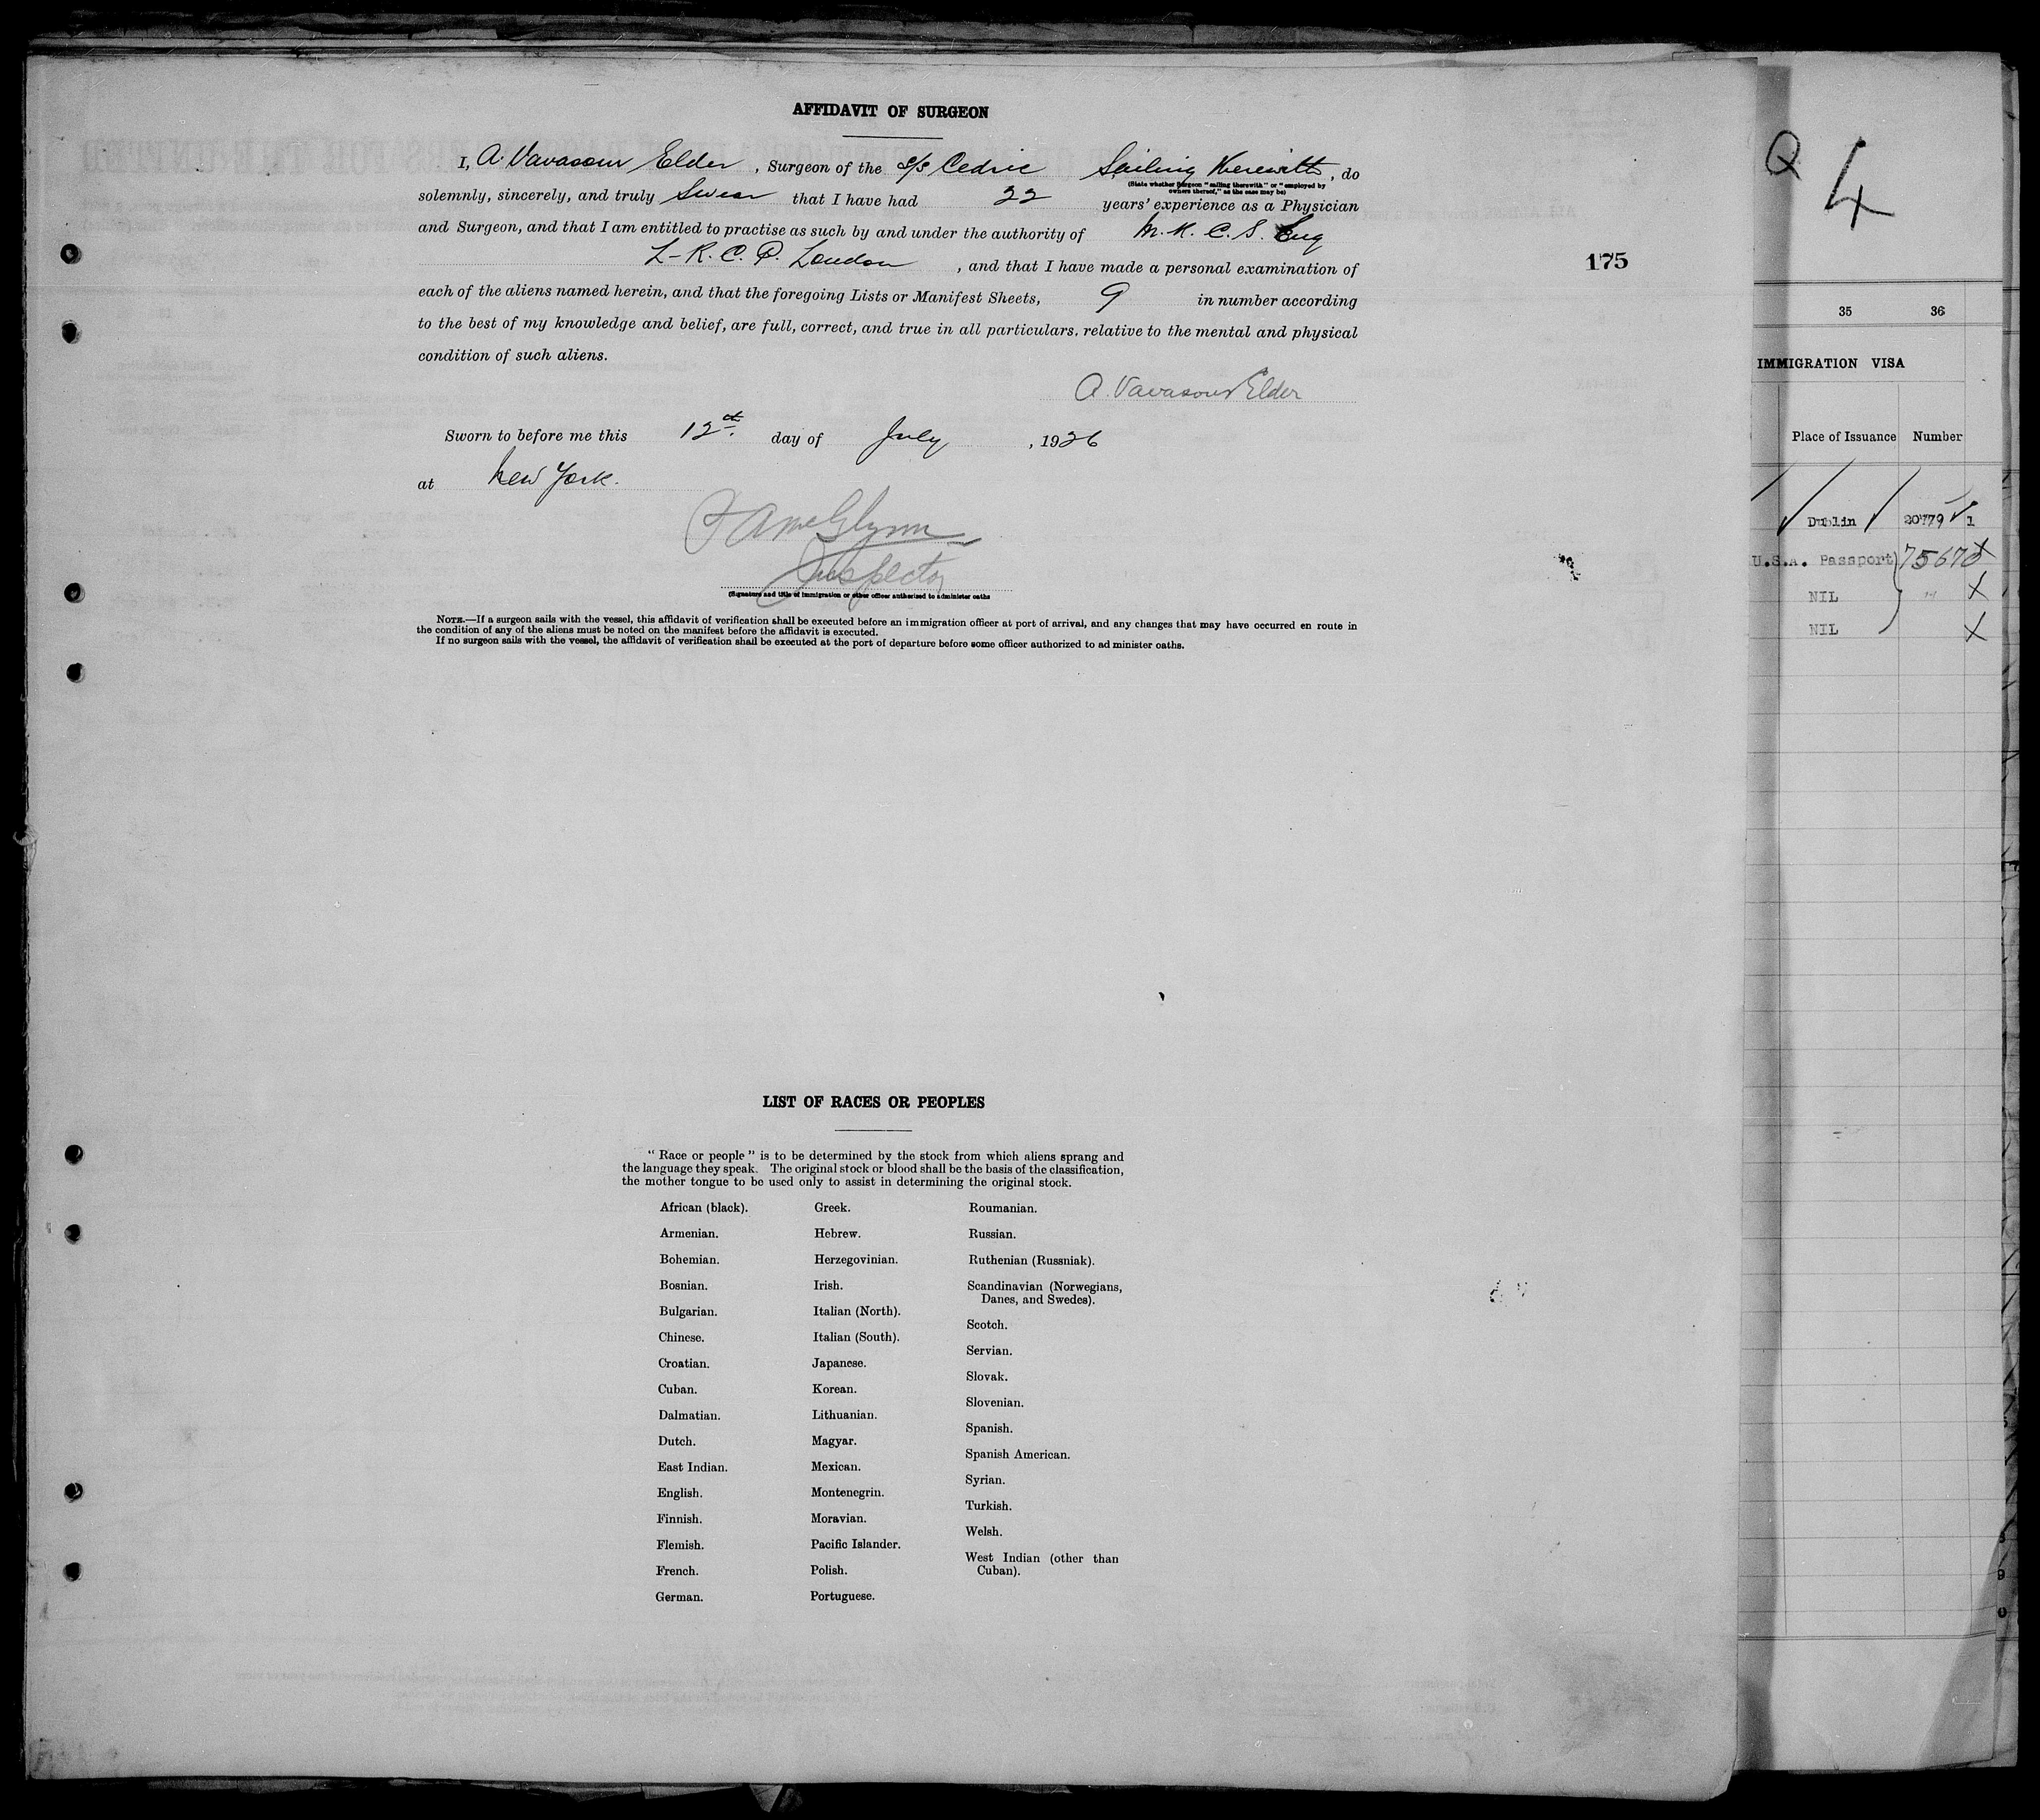 AFFIDAVIT OF SURGEON
I, A. Vavasour Elder, Surgeon of the S/S Cedric Sailing Therewith, do
(State whether Surgeon "sailing therewith" or "employed by
owners thereof," as the case may be)
solemnly, sincerely, and truly Swear that I have had 22 years' experience as a Physician
and Surgeon, and that I am entitled to practise as such by and under the authority of M. R. C. S. Eng
L-R. C. P. London, and that I have made a personal examination of
each of the aliens named herein, and that the foregoing Lists or Manifest Sheets, 9 in number according
to the best of my knowledge and belief, are full, correct, and true in all particulars, relative to the mental and physical
condition of such aliens.
A. Vavasour Elder
Sworn to before me this 12th. day of July, 1926
at New York.
McGlynn
Inspector
(Signature and title of immigration or other officer authorized to administer oaths
NOTE.—If a surgeon sails with the vessel, this affidavit of verification shall be executed before an immigration officer at port of arrival, and any changes that may have occurred en route in
the condition of any of the aliens must be noted on the manifest before the affidavit is executed.
If no surgeon sails with the vessel, the affidavit of verification shall be executed at the port of departure before some officer authorized to ad minister oaths.
175
LIST OF RACES OR PEOPLES
"Race or people" is to be determined by the stock from which aliens sprang and
the language they speak. The original stock or blood shall be the basis of the classification,
the mother tongue to be used only to assist in determining the original stock.
African (black).
Armenian.
Bohemian.
Bosnian.
Bulgarian.
Chinese.
Croatian.
Cuban.
Dalmatian.
Dutch.
East Indian.
English.
Finnish.
Flemish.
French.
German.
Greek.
Hebrew.
Herzegovinian.
Irish.
Italian (North).
Italian (South).
Japanese.
Korean.
Lithuanian.
Magyar.
Mexican.
Montenegrin.
Moravian.
Pacific Islander.
Polish.
Portuguese.
Roumanian.
Russian.
Ruthenian (Russniak).
Scandinavian (Norwegians,
Danes, and Swedes).
Scotch.
Servian.
Slovak.
Slovenian.
Spanish.
Spanish American.
Syrian.
Turkish.
Welsh.
West Indian (other than
Cuban).
Q 4
35 36
IMMIGRATION VISA
Place of Issuance Number
Dublin 20779 1
U.S.A. Passport) 75670 X
NIL " X
NIL X